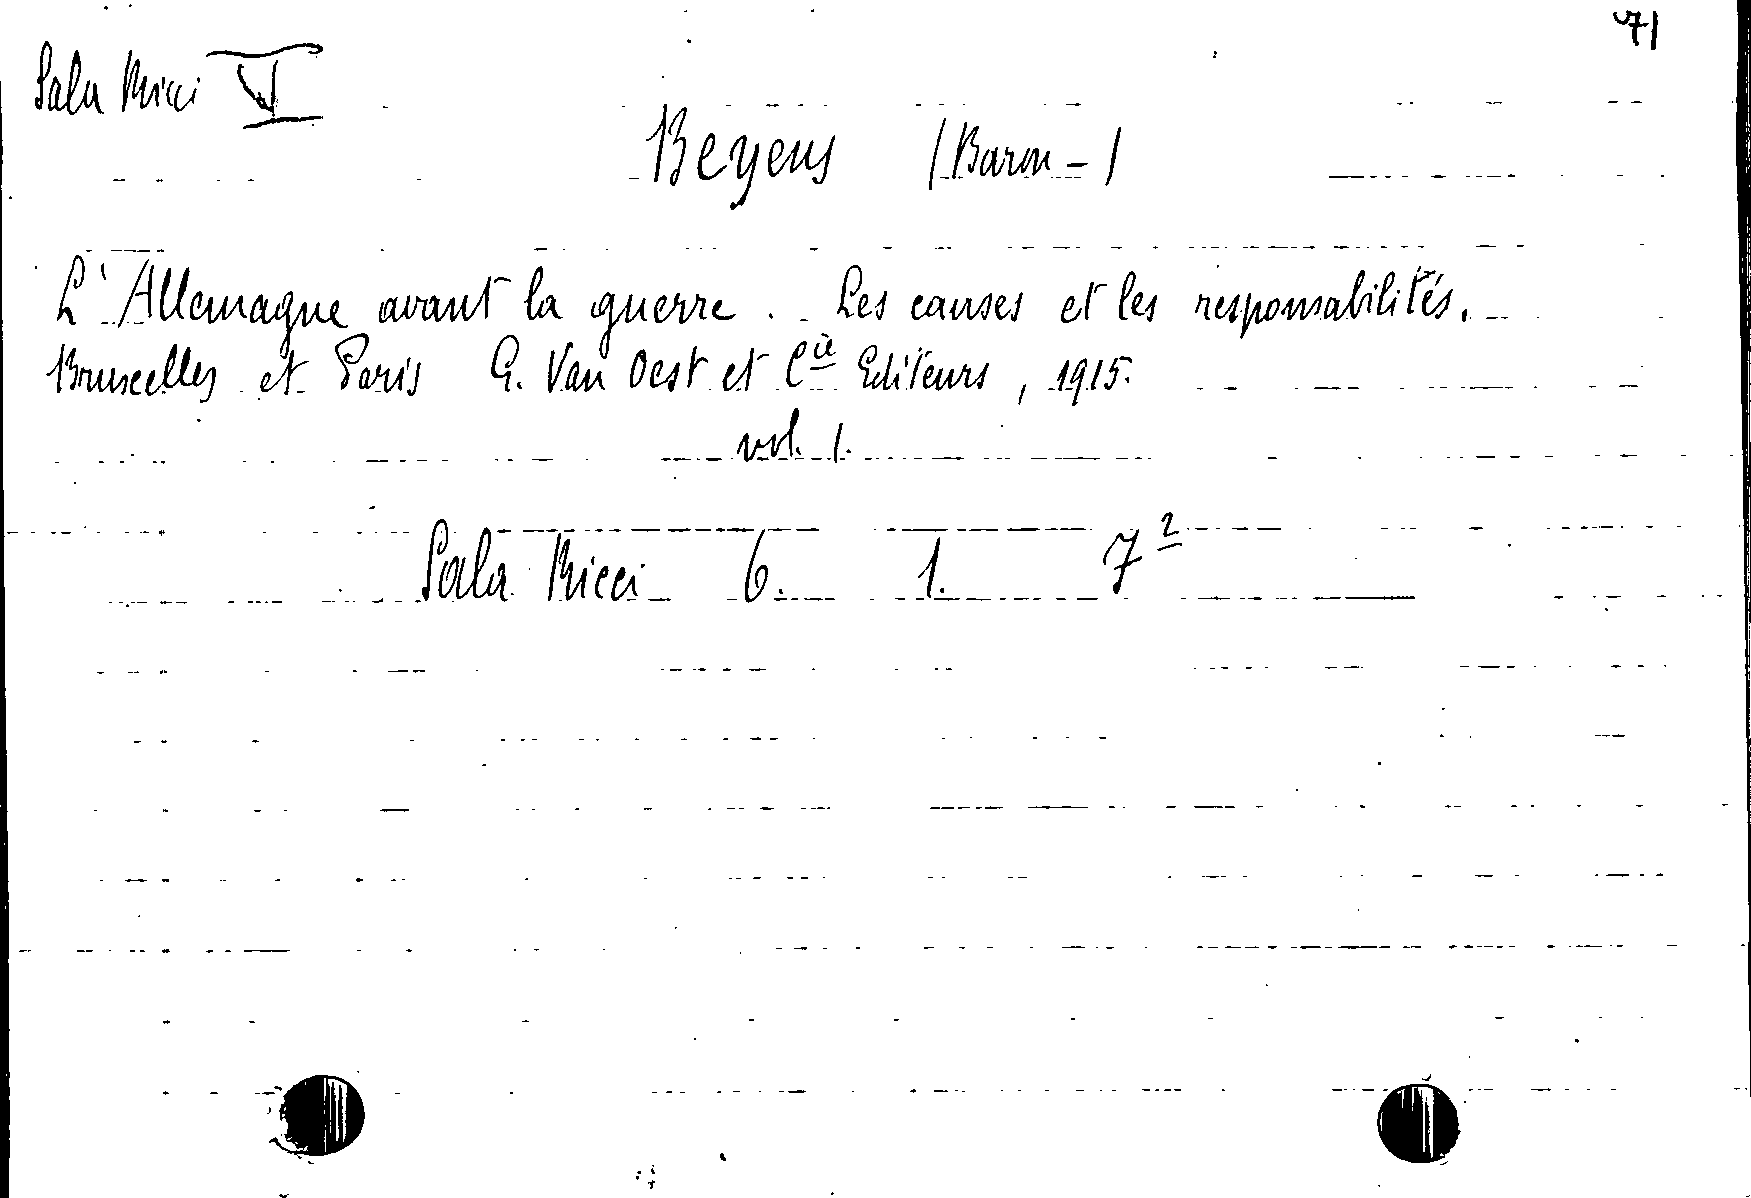 71
Sala Ricci V
Beyens (Baron-)
L'Allemagne avant la guerre. Les causes et les responsabilités.
Bruxelles et Paris G. Van Oest et Cie Editeurs, 1915.
vol. 1.
Sala Ricci 6. 1. 7²